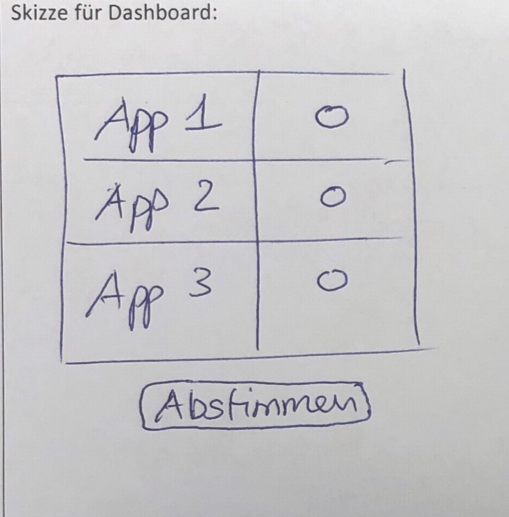 Skizze für Dashboard:
App 1
App 2
App 3
Abstimmen